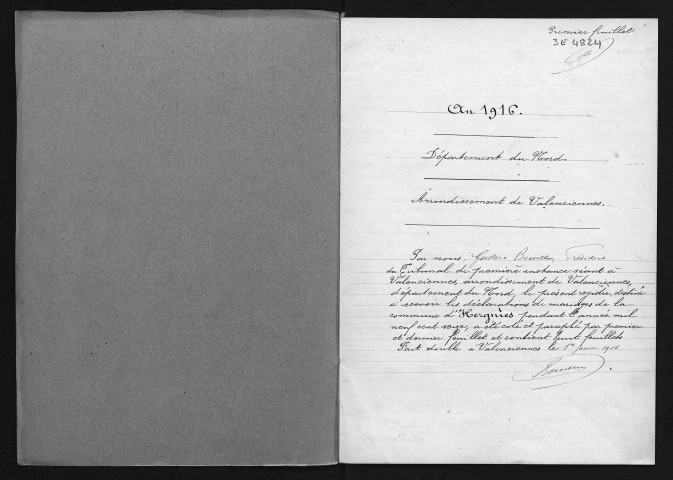 Premier feuillet
3E 4824
An 1916.
Département du Nord.
Arrondissement de Valenciennes.
Par nous, Président
du Tribunal de première instance séant à
Valenciennes, arrondissement de Valenciennes,
département du Nord, le présent registre, destiné
à recevoir les déclarations de mariages de la
commune d'Hergnies pendant l'année mil
neuf cent seize, a été coté et paraphé par premier
et dernier feuillet et contient huit feuillets
Fait double à Valenciennes le 1er Janvier 1916